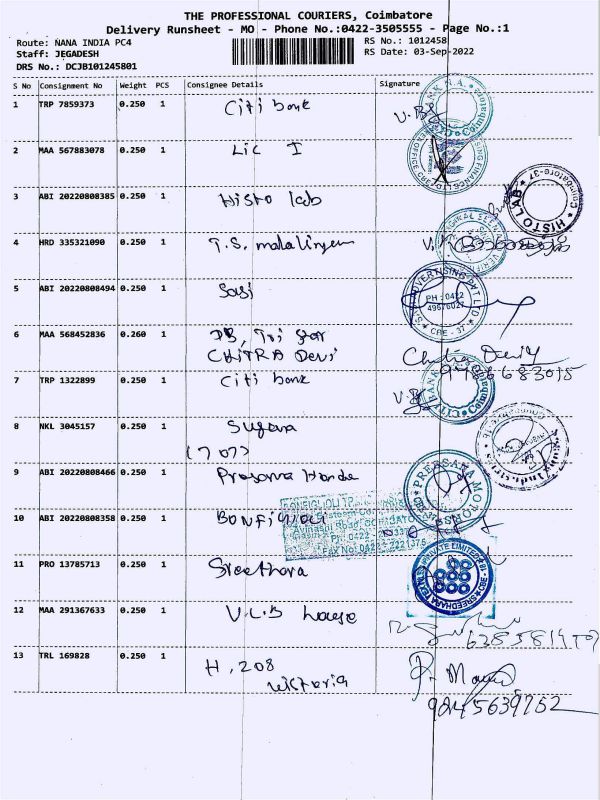 THE PROFESSIONAL COURIERS, Coimbatore
Delivery Runsheet - MO - Phone No.:0422-3505555 - Page No.:1
Route: NANA INDIA PC4
RS No.: 1012458
Staff: JEGADESH
RS Date: 03-Sep-2022
DRS No.: DCJB101245801
S No Consignment No Weight PCS Consignee Details Signature
1 TRP 7859373 0.250 1 Citi bank
2 MAA 567883078 0.250 1 Lic I
3 ABI 20220808385 0.250 1 Histo lab
HISTO LAB Coimbatore-37
4 HRD 335321090 0.250 1 T.S.
5 ABI 20220808494 0.250 1 Sasi
PH : 0422
CBE - 37
6 MAA 568452836 0.260 1 DB, Tri Star
CHITRA Devi
Chitra Devi
9786683015
7 TRP 1322899 0.250 1 Citi bank
CITY BANK Coimbatore
8 NKL 3045157 0.250 1 Suguna
(707)
9 ABI 20220808466 0.250 1 Prasanna Honda
10 ABI 20220808358 0.250 1 Bonfiglioli
11 PRO 13785713 0.250 1 Sreethara
PRIVATE LIMITED
12 MAA 291367633 0.250 1 V.L.B house
13 TRL 169828 0.250 1 H, 208
Victoria
9845639762